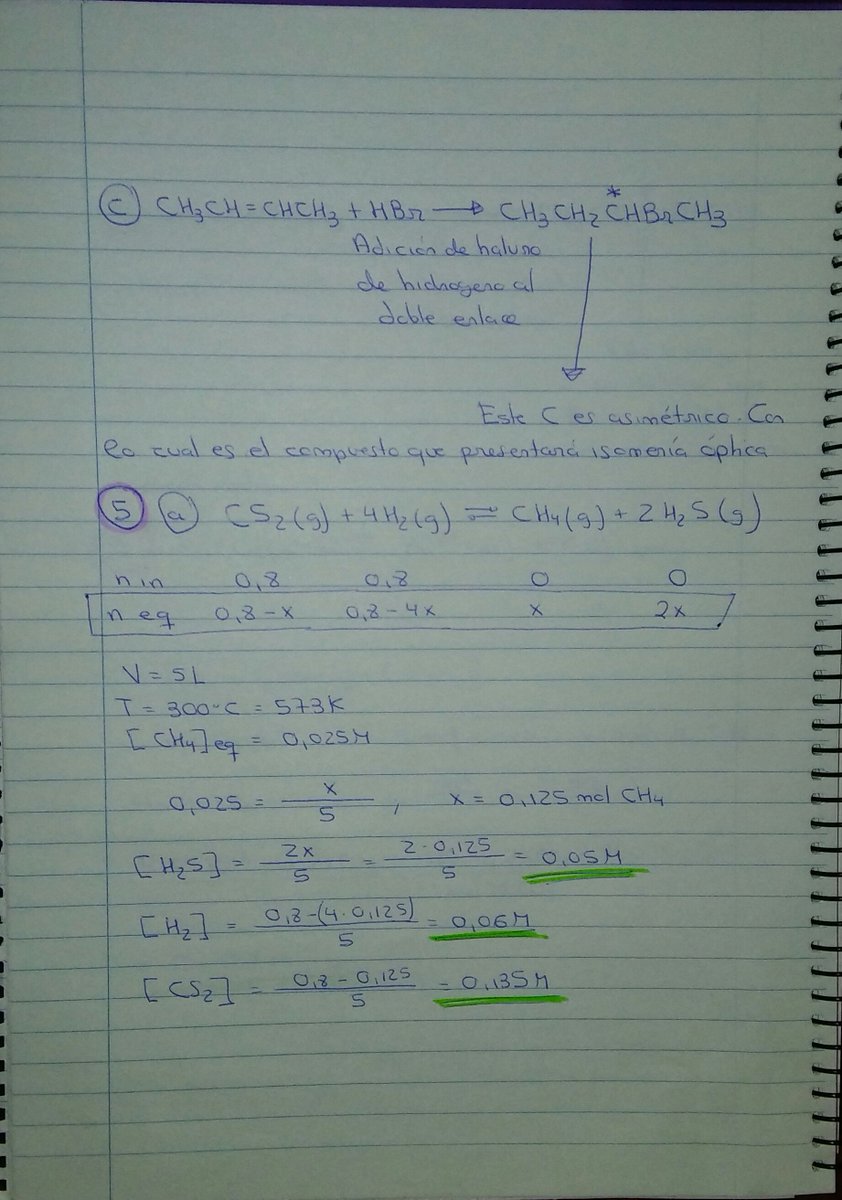 c CH₃CH=CHCH₃ + HBr → CH₃CH₂C*HBrCH₃
Adición de haluro
de hidrogeno al
doble enlace
Este C es asimétrico. Con
lo cual es el compuesto que presentará isomería óptica
5 a CS₂(g) + 4H₂(g) ⇌ CH₄(g) + 2H₂S(g)
n in 0,8 0,8 0 0
n eq 0,8-x 0,8-4x x 2x
V = 5L
T = 300°C = 573K
[CH₄]eq = 0,025M
0,025 = x/5 , x = 0,125 mol CH₄
[H₂S] = 2x/5 = 2·0,125/5 = 0,05M
[H₂] = 0,8-(4·0,125)/5 = 0,06M
[CS₂] = 0,8-0,125/5 = 0,135M